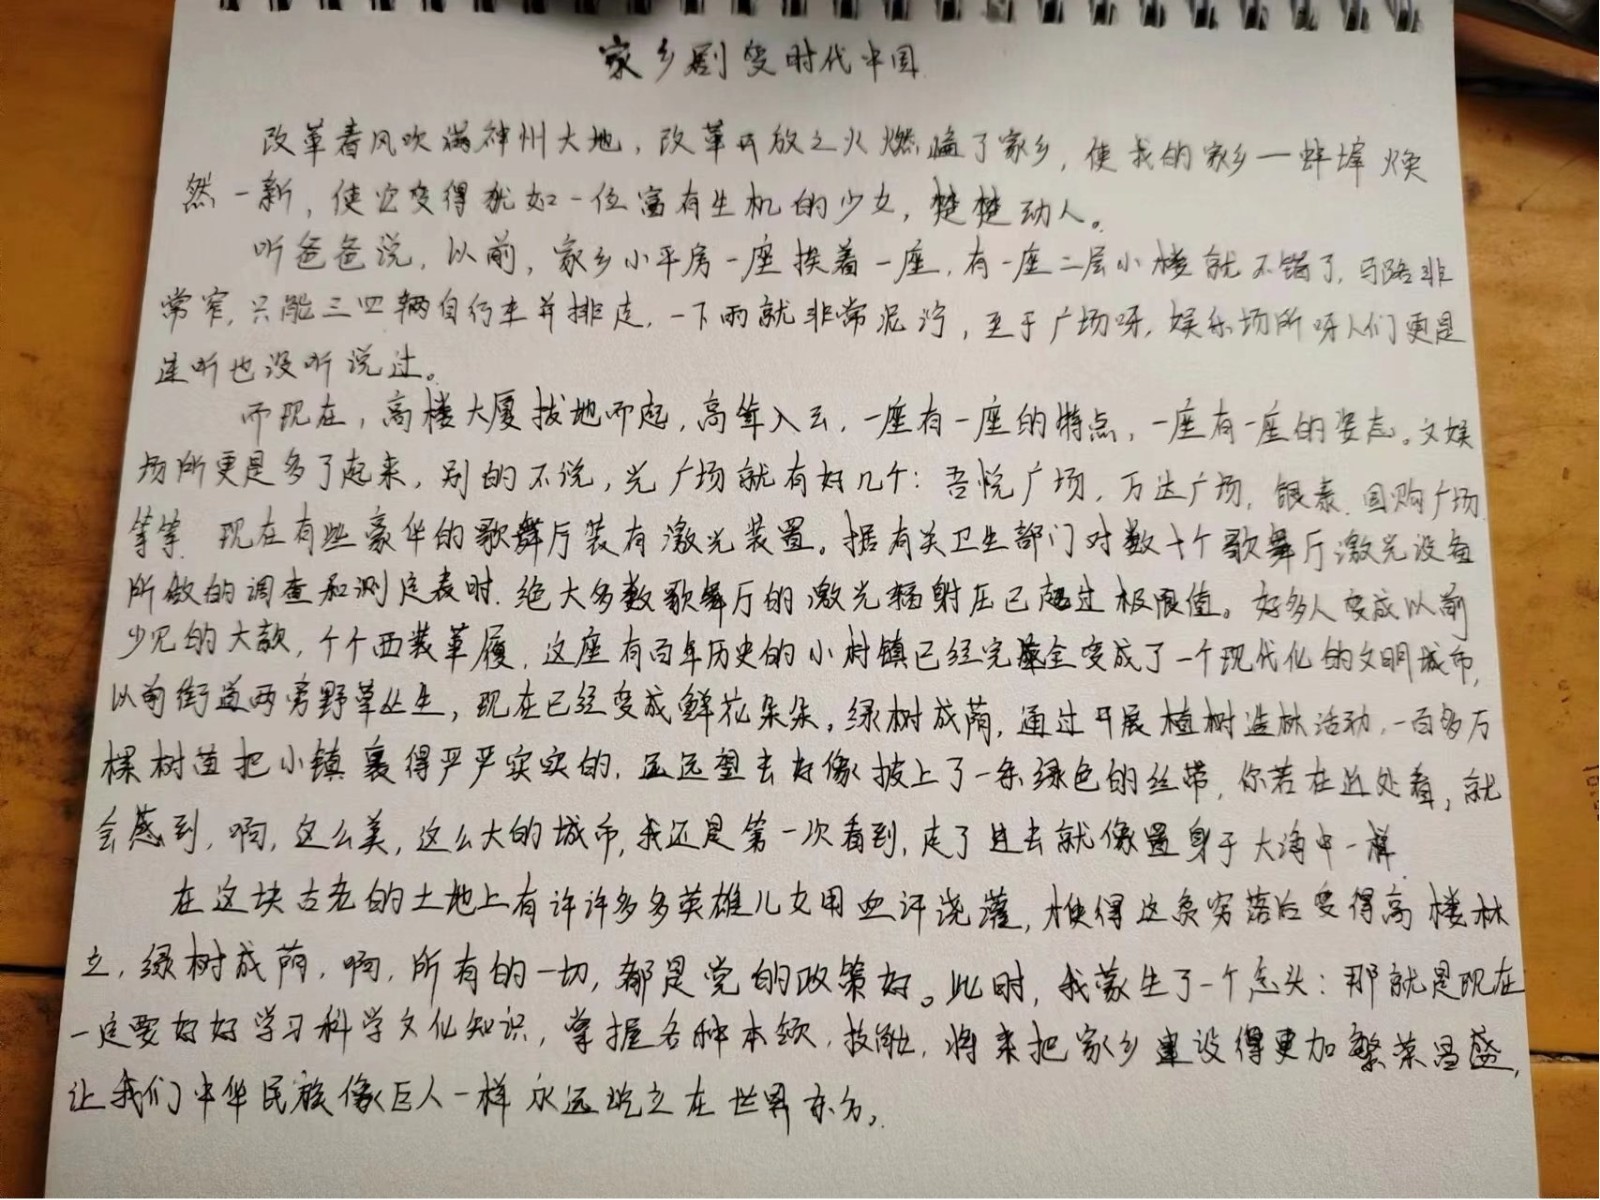 家乡剧变时代中国
改革春风吹满神州大地，改革开放之火燃遍了家乡，使我的家乡一蚌埠焕
然一新，使它变得犹如一位富有生机的少女，楚楚动人。
听爸爸说，以前，家乡小平房一座挨着一座，有一座二层小楼就不错了，马路非
常窄，只能三四辆自行车并排走，一下雨就非常泥泞，至于广场呀，娱乐场所呀人们更是
连听也没听说过。
而现在，高楼大厦拔地而起，高耸入云，一座有一座的特点，一座有一座的姿态。文娱
场所更是多了起来，别的不说，光广场就有好几个：吾悦广场，万达广场，银泰，国购广场
等等 现在有些豪华的歌舞厅装有激光装置。据有关卫生部门对数十个歌舞厅激光设备
所做的调查和测定表时，绝大多数歌舞厅的激光辐射压已超过极限值。好多人变成以前
少见的大款，个个西装革履，这座有百年历史的小村镇已经完全变成了一个现代化的文明城市，
以前街道两旁野草丛生，现在已经变成鲜花朵朵，绿树成荫，通过开展植树造林活动，一百多万
棵树苗把小镇裹得严严实实的，远远望去好像披上了一条绿色的丝带，你若在近处看，就
会感到，啊，这么美，这么大的城市，我还是第一次看到，走了进去就像置身于大海中一样
在这块古老的土地上有许许多多英雄儿女用血汗浇灌，使得这贫穷落后变得高楼林
立，绿树成荫，啊，所有的一切，都是党的政策好。此时，我蒙生了一个念头：那就是现在
一定要好好学习科学文化知识，掌握各种本领，技能，将来把家乡建设得更加繁荣昌盛，
让我们中华民族像巨人一样永远屹立在世界东方。